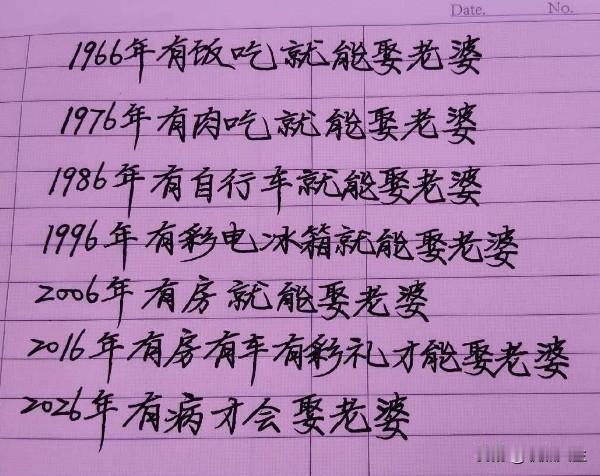 Date.
No.
1966年有饭吃就能娶老婆
1976年有肉吃就能娶老婆
1986年有自行车就能娶老婆
1996年有彩电冰箱就能娶老婆
2006年有房就能娶老婆
2016年有房有车有彩礼才能娶老婆
2026年有病才会娶老婆